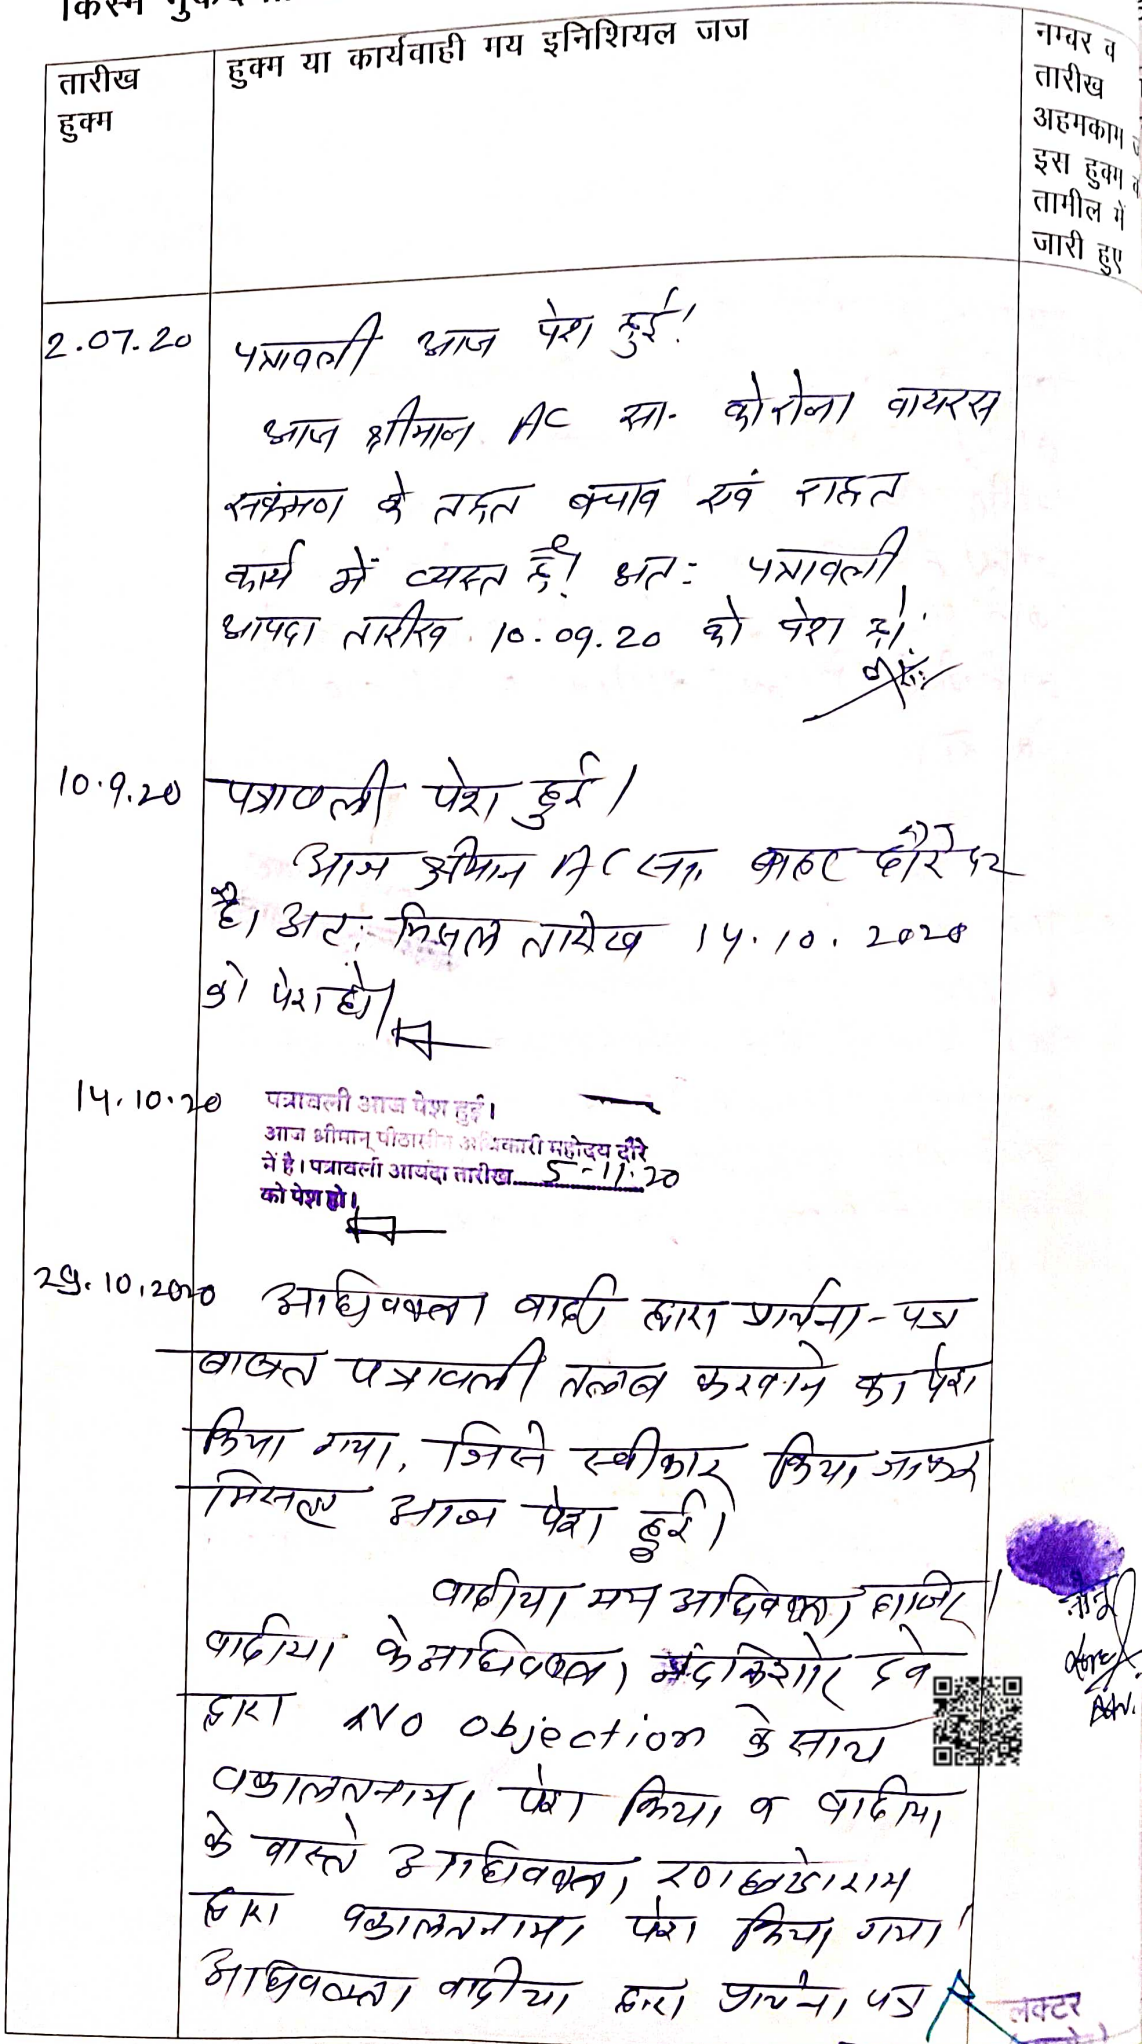 किस्म
तारीख
हुक्म
हुक्म या कार्यवाही मय इनिशियल जज
नम्बर व
तारीख
अहमकाम
इस हुक्म
तामील में
जारी हुए
2.07.20
पत्रावली आज पेश हुई!
आज श्रीमान AC सा. कोरोना वायरस
सक्रंमण के तहत बचाव एवं राहत
कार्य में व्यस्त है! अतः पत्रावली
आयदा तारीख 10.09.20 को पेश हो!
10.9.20
पत्रावली पेश हुई।
आज श्रीमान AC सा. बाहर दौरे पर
है। अतः मिसल तारीख 14.10.2020
को पेश हो।
14.10.20
पत्रावली आज पेश हुई।
आज श्रीमान् पीठासीन अधिकारी महोदय दौरे
में है। पत्रावली आयंदा तारीख 5-11.20
को पेश हो।
29.10.2020
अधिवक्ता वादी द्वारा प्रार्थना-पत्र
बाबत पत्रावली तलब करवाने का पेश
किया गया, जिसे स्वीकार किया जाकर
मिसल आज पेश हुई।
वादीया मय अधिवक्ता हाजिर।
वादीया के अधिवक्ता नंदकिशोर दवे
द्वारा No objection के साथ
वकालतनामा पेश किया व वादीया
के वास्ते अधिवक्ता रणछोडाराम
द्वारा वकालतनामा पेश किया गया।
अधिवक्ता वादीया द्वारा प्रार्थना पत्र
Adv.
लेक्टर